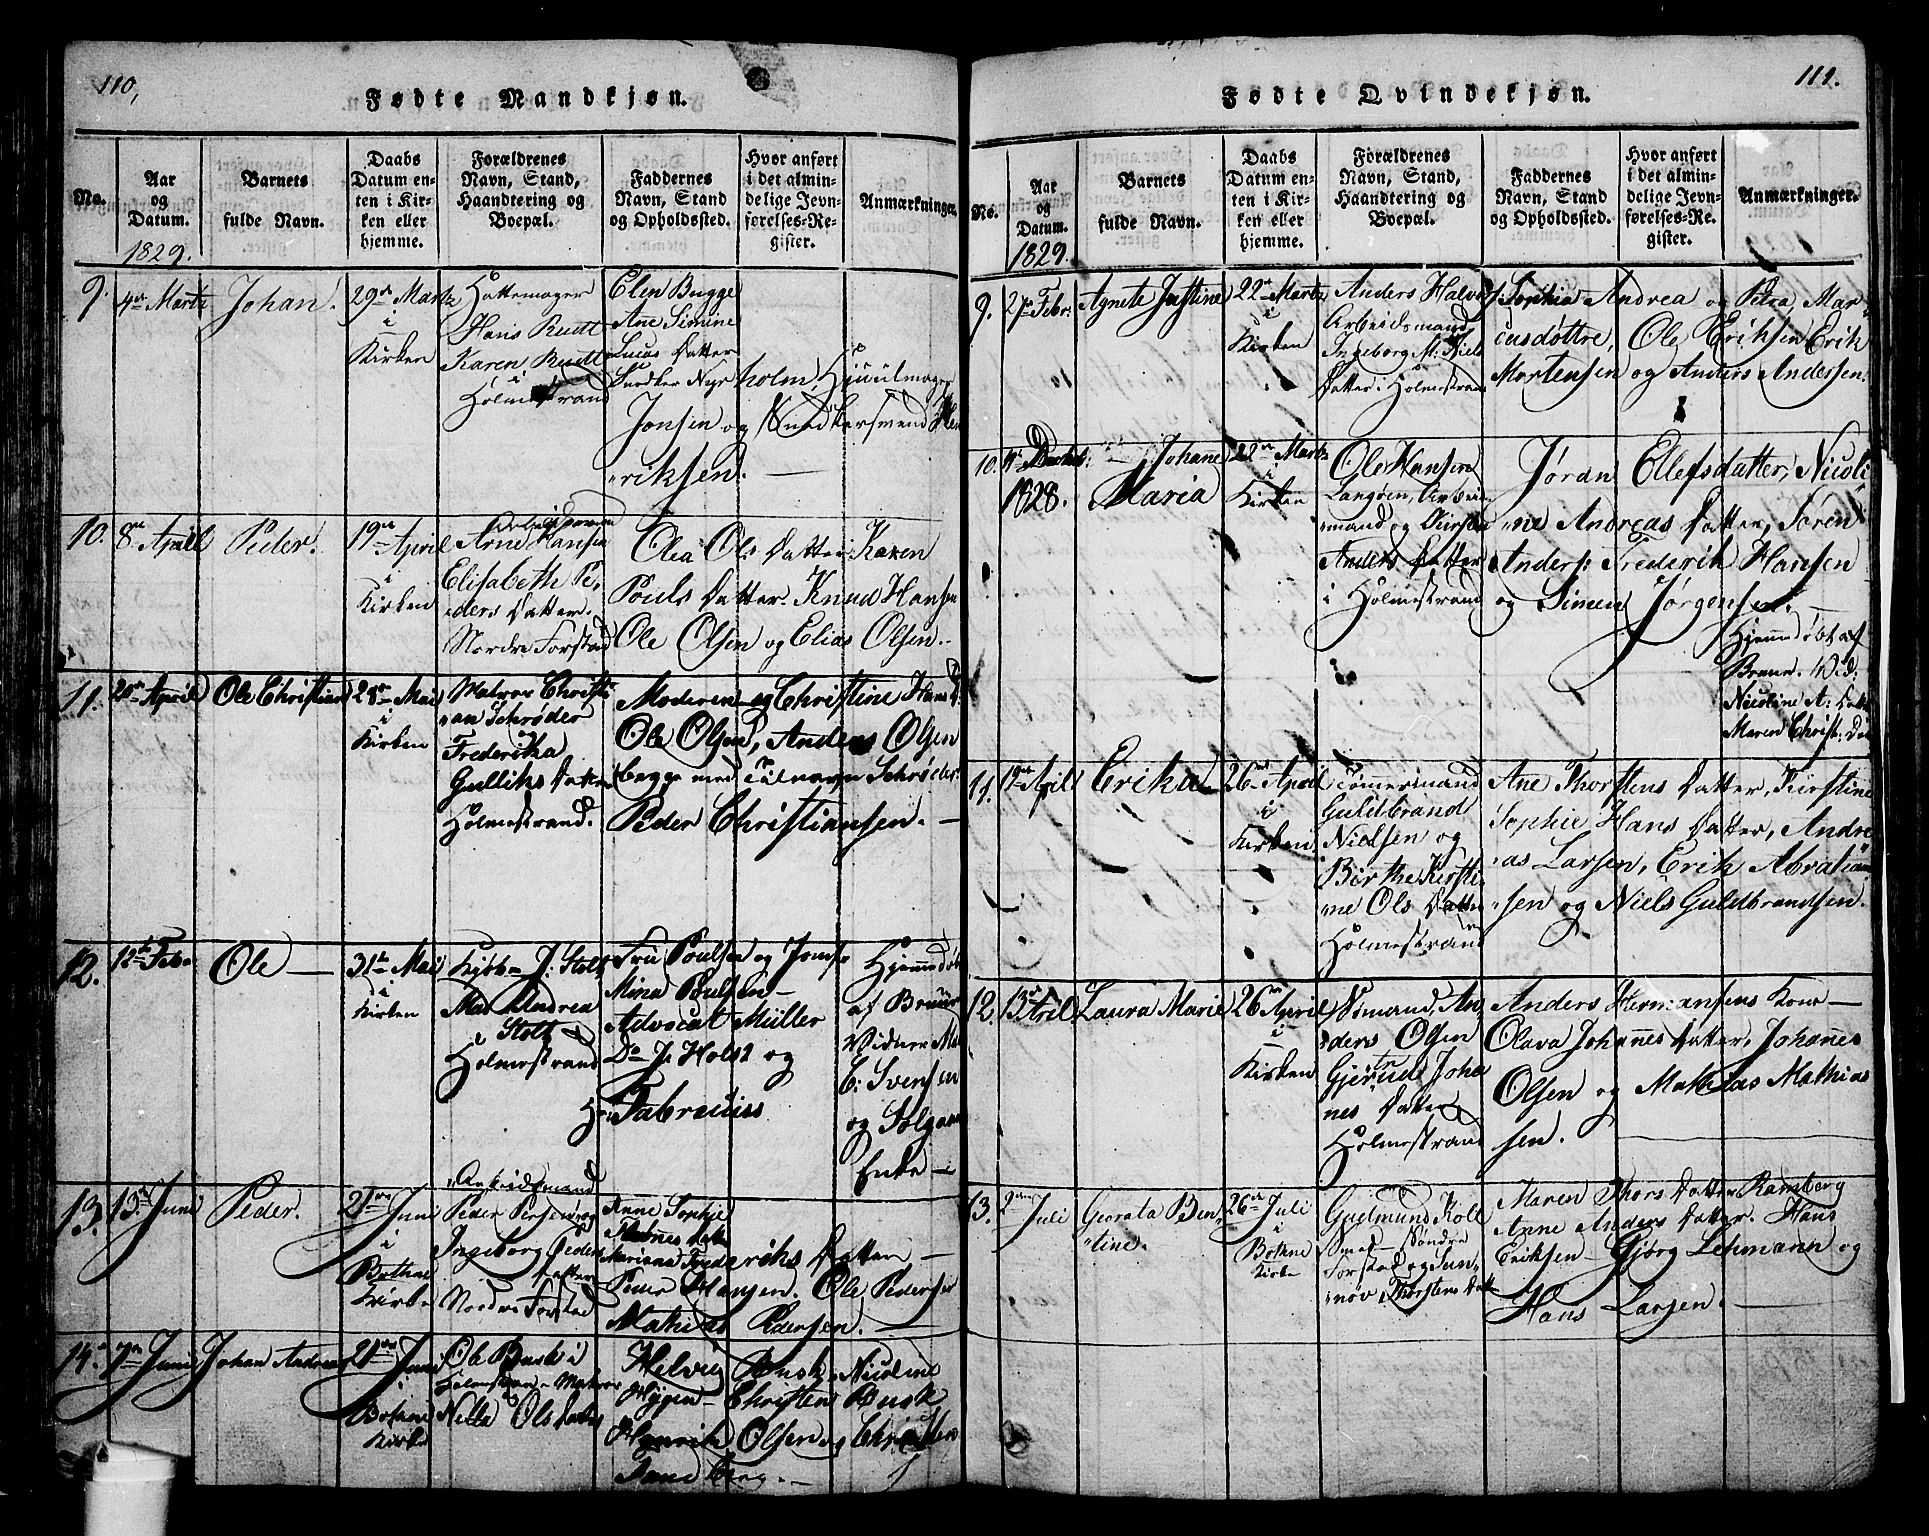 110,
Fødte Mandkjøn.
No.
Aar
og
Datum.
1829.
Barnets
fulde Navn.
Daabs
Datum en-
ten i Kir-
ken eller
hjemme.
Forældrenes
Navn, Stand,
Haandtering og
Boepæl.
Faddernes
Navn, Stand
og Opholdssted.
Hvor anført
i det almin-
delige Jevn-
førelses-Re-
gister.
Anmærkninger.
9.
4de Martz
Johan.
29de Martz
i
Kirken
Hattemager
Hans Ruett
Karen Ruett
i
Holmestrand
Elen Bugge
Ane Simine
Lucas Datter
Snedker Nyrholm, Hjuulmager
Jonsen og Snedkersvend Hen
riksen. —
10.
8de April
Peder.
19de April
i
Kirken
Arbeidsmand
Arne Hansen
Elisabeth Pe-
ders Datter.
Nordre Forstad
Olea Ols Datter Karen
Pouls Datter. Knud Hansen
Ole Olsen og Elias Olsen. -
11.
20de April
Ole Christian
28de Mai
i
Kirken
Matros Christi
an Schrøder
Frederikka
Gulliks Datter
Holmestrand.
Moderen og Christine Hans D:
Ole Olsen, Anders Olsen
begge med Tilnavn Schrøder.
Peder Christiansen. -
12.
12te Feb.
Ole —
31te Mai
i
Kirken
Kjøbm J: Stolt
Mad Andrea
Stoltz
i
Holmestrand
Fru Poulsen og Jomfr
Mina Poulsen -
Advocat Müller
Do J: Holst og
Hr: Fabricius
Hjemmedøbt
af Bruun
Vidner Mad
C: Svensen
og Solgaard
Enke -
13.
13de Juni
Peder.
21de Juni
i
Bothne
Kirke
Arbeidsmand
Peder Persen og
Ingeborg Peders
Datter
Nordre Forstad
Anne Sophie
Hannes Datter
Mariana Frederiks Datter -
Peder Hansen. Ole Pedersen
Mathias Pedersen. —
14.
7de Juni
Johan Andreas
21de Juni
i
Botne
Kirke
Ole Busk i
Holmestran - Matros
Nilla Ols Datter
Helvig Busk, Nicoline
Hygen - Christen Busk
Henrik Olsen og Christen
Sandberg. -
111.
Fødte Qvindekjøn.
No.
Aar
og
Datum.
1829.
Barnets
fulde Navn.
Daabs
Datum en-
ten i Kir-
ken eller
hjemme.
Forældrenes
Navn, Stand,
Haandtering og
Boepæl.
Faddernes
Navn, Stand
og Opholdssted.
Hvor anført
i det almin-
delige Jevn-
førelses-Re-
gister.
Anmærkninger.
9.
27de Febr:
Agnete Justine
22de Martz
i
Kirken
Anders Halvors
Arbeidsmand
Ingeborg M: Niels
Datter i Holmestrand
Sophia Andrea og Petra Mar-
cusdøttre, Ole Eriksen Erik
Mortensen og Anders Andersen.
10.
4de Decbr:
1828.
Johane
Maria
22de Martz
i
Kirken
Ole Hansen
Langøen, Arbei
mand og Kirsti
Anders Datter
i Holmestrand
Jøran Ellefsdatter, Nicoli
ne Andreas Datter, Søren
Anders: Frederik Hansen
og Simen Jørgensen. -
Hjemmedøbt af
Bruun. Vid:
Nicoline A: Datt
Maren Christ: D:
11.
19de April
Erika
26de April
i
Kirken
Tømmermand
Guldbrand
Nielsen og
Birthe Kirsti-
ne Ols Datter
Holmestrand
Ane Thorstens Datter, Kirstine
Sophie Hans Datter, Andre
as Larsen, Erik Abraham
sen og Niels Guldbrandsen.
12.
13de April
Laura Marie
26de April
i
Kirken
Sømand, An
ders Olsen
Gjertrud Joha
nes Datter
Holmestrand
Anders Hermansens Kone —
Olava Johannes Datter, Johannes
Olsen og Mathias Mathias
sen.
13.
2den Juli
Georata Ben-
tine.
26de Juli
i
Botne
Kirke
Gudmund Koll
Smed - Søndre
Forstad og Sun
nøv Thorstens Datt
Maren Thors Datter Ramberg
Anne Anders Datter. Hans
Eriksen - Gjørg Lehmann og
Hans Larsen. —